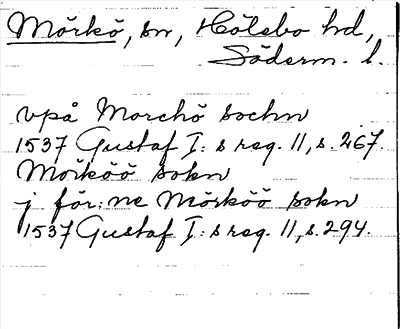 Mörkö, sn, Hölebo hd,
Söderm. l.
vpå Morchö sochn
1537 Gustaf I: s reg. 11, s. 267.
Mörköö sokn
j för:ne Mörsköö sokn
1537 Gustaf I: s reg. 11, s. 294.